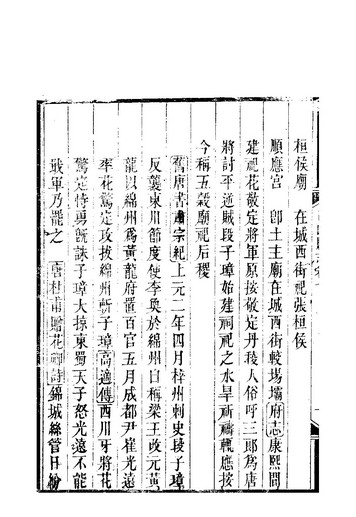 桓侯廟 在城西街祀張桓侯
順應宮 即土主廟在城西街較場壩府志康熙間
建祀花敬定將軍原按敬定丹稜人俗呼三郎爲唐
將討平逆賊段子璋始建祠祀之水旱祈禱輒應接
今稱五穀廟祀后稷
舊唐書肅宗紀上元二年四月梓州刺史段子璋
反襲東川節度使李奐於綿州自稱梁王改元黃
龍以綿州爲黃龍府置百官五月成都尹崔光遠
率花驚定攻拔綿州斬子璋高適傳西川牙將花
驚定恃勇既誅子璋大掠東蜀天子怒光遠不能
戢軍乃罷之 唐杜甫贈花卿詩錦城絲管日紛